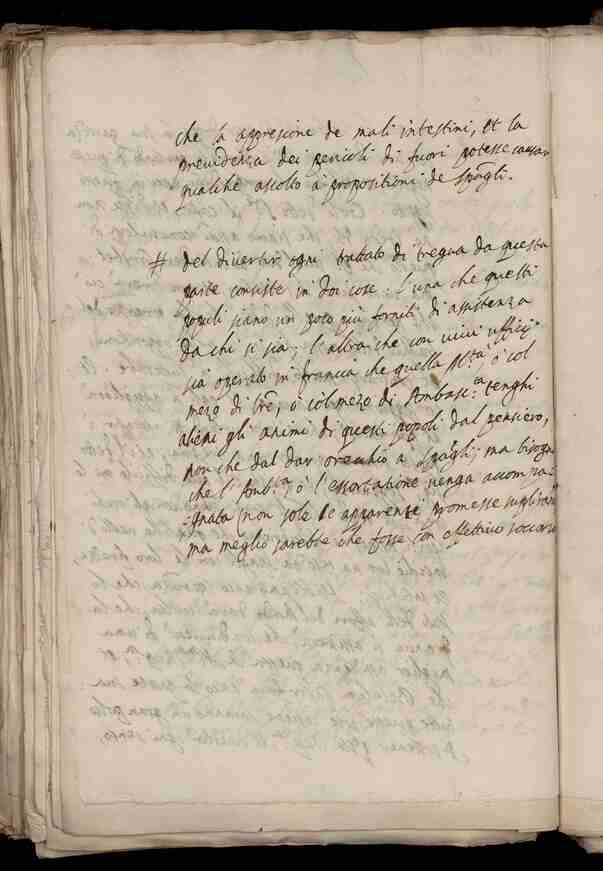 che la appresione de mali intestini, et la
previdenza dei pericoli di fuori potesse causar
qualche ascolto à propositioni de Spagli.
# del divertir ogni trattato di tregua da questa
parte consiste in doi cose: l'una che questi
popoli siano un poco più forniti di assistenza
da chi si sia, l'altra che con vivi ufficij
sia operato in franza che quella Mtà, ò col
mezo di lre, ò col mezo di Ambasc.ta tenghi
alieni gli animi di questi popoli dal pensiero,
non che dal dar orecchio à Spagli; ma bisogna
che l'Amb.ta, ò l'essortatione venga accompa=
=gnata non sole le apparenti promesse
ma meglio sarebbe che fosse con effettivo soccorso